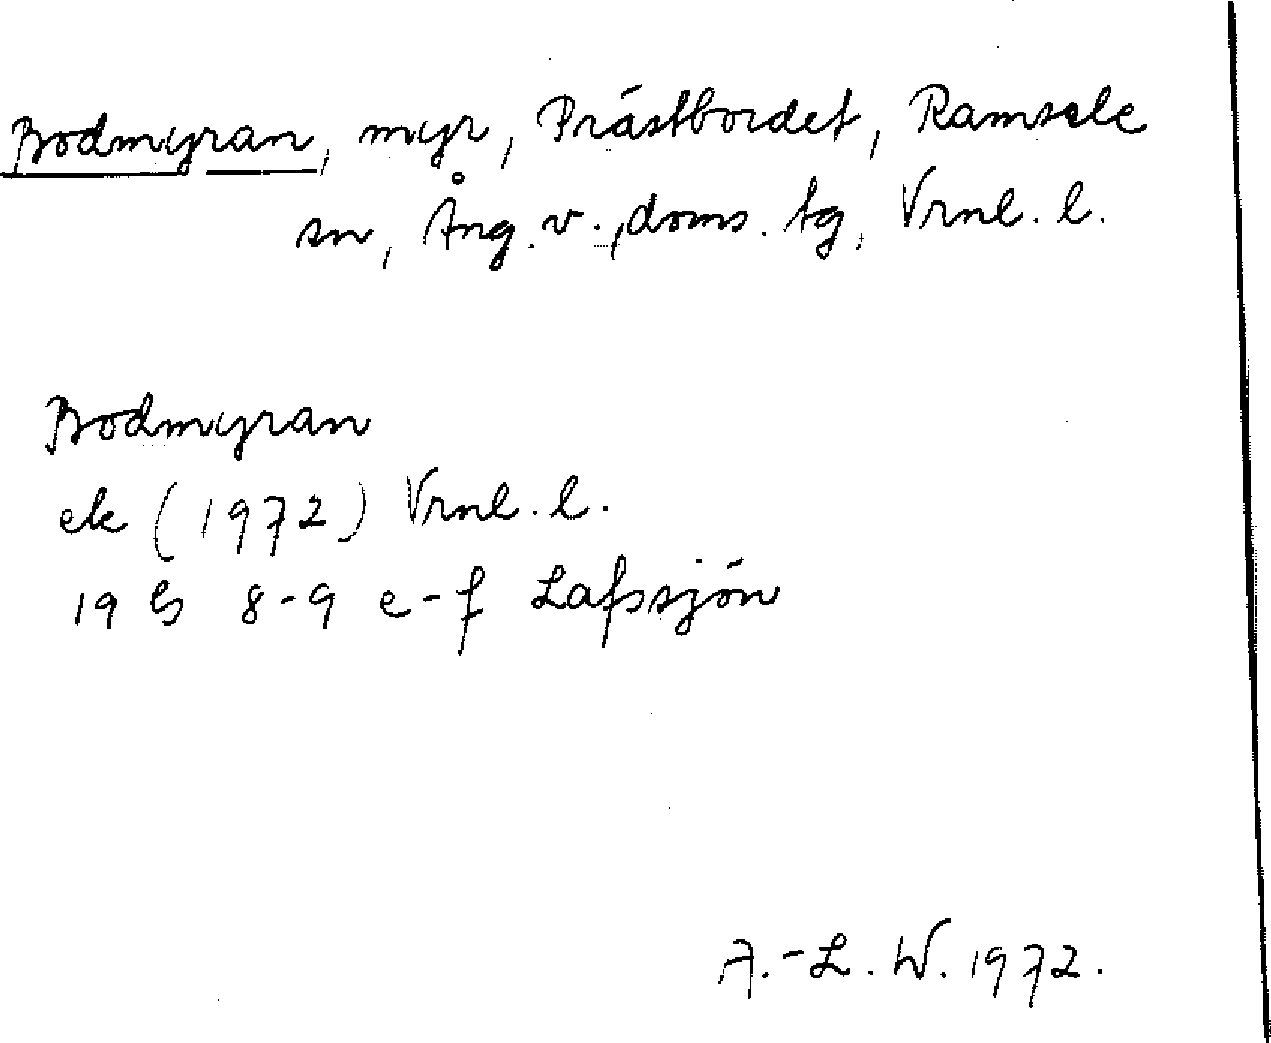 Bodmyran, myr, Prästbordet, Ramsele
sn, Ång. v., doms. tg, Vrnl. l.
Bodmyran
ek (1972) Vrnl. l.
19 G 8-9 e-f Lafssjön
A.-L. W. 1972.